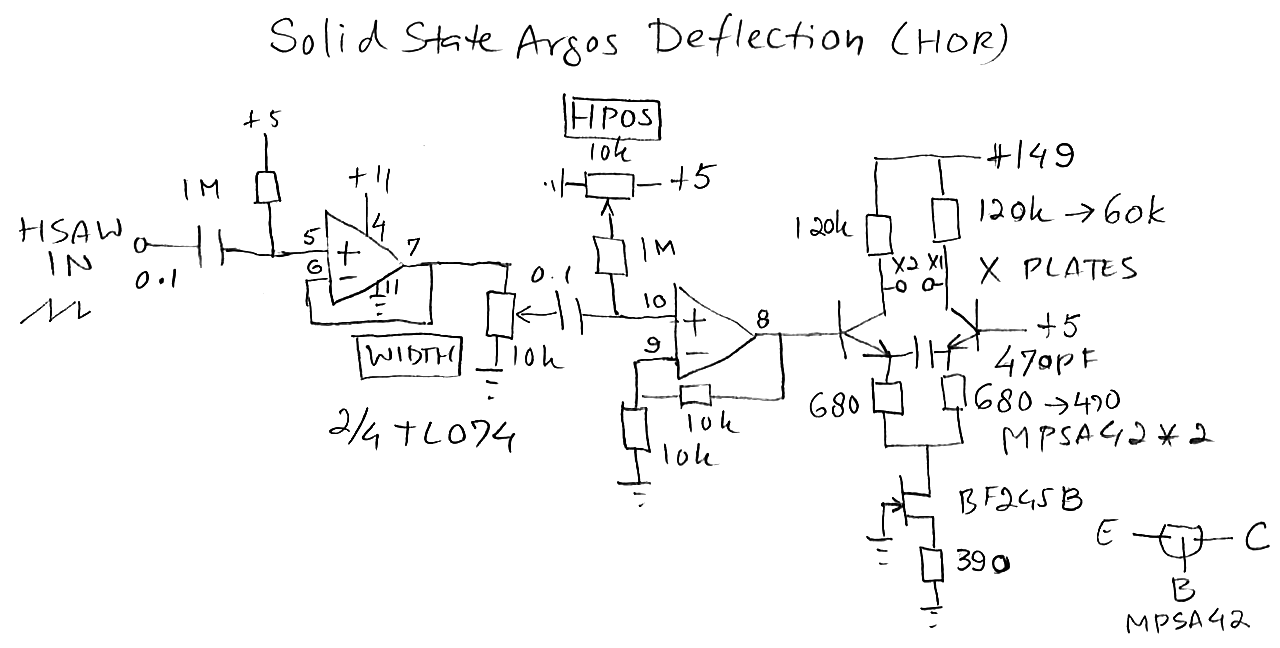 Solid State Argos Deflection (HOR)
+5
1M
HSAW
IN
0.1
+11
5
6
4
7
11
WIDTH
10k
2/4 TL074
HPOS
10k
+5
1M
0.1
10
9
8
10k
10k
+149
120k
120k → 60k
X2 X1
X PLATES
+5
470pF
680
680 → 470
MPSA42 * 2
BF245B
390
E
C
B
MPSA42